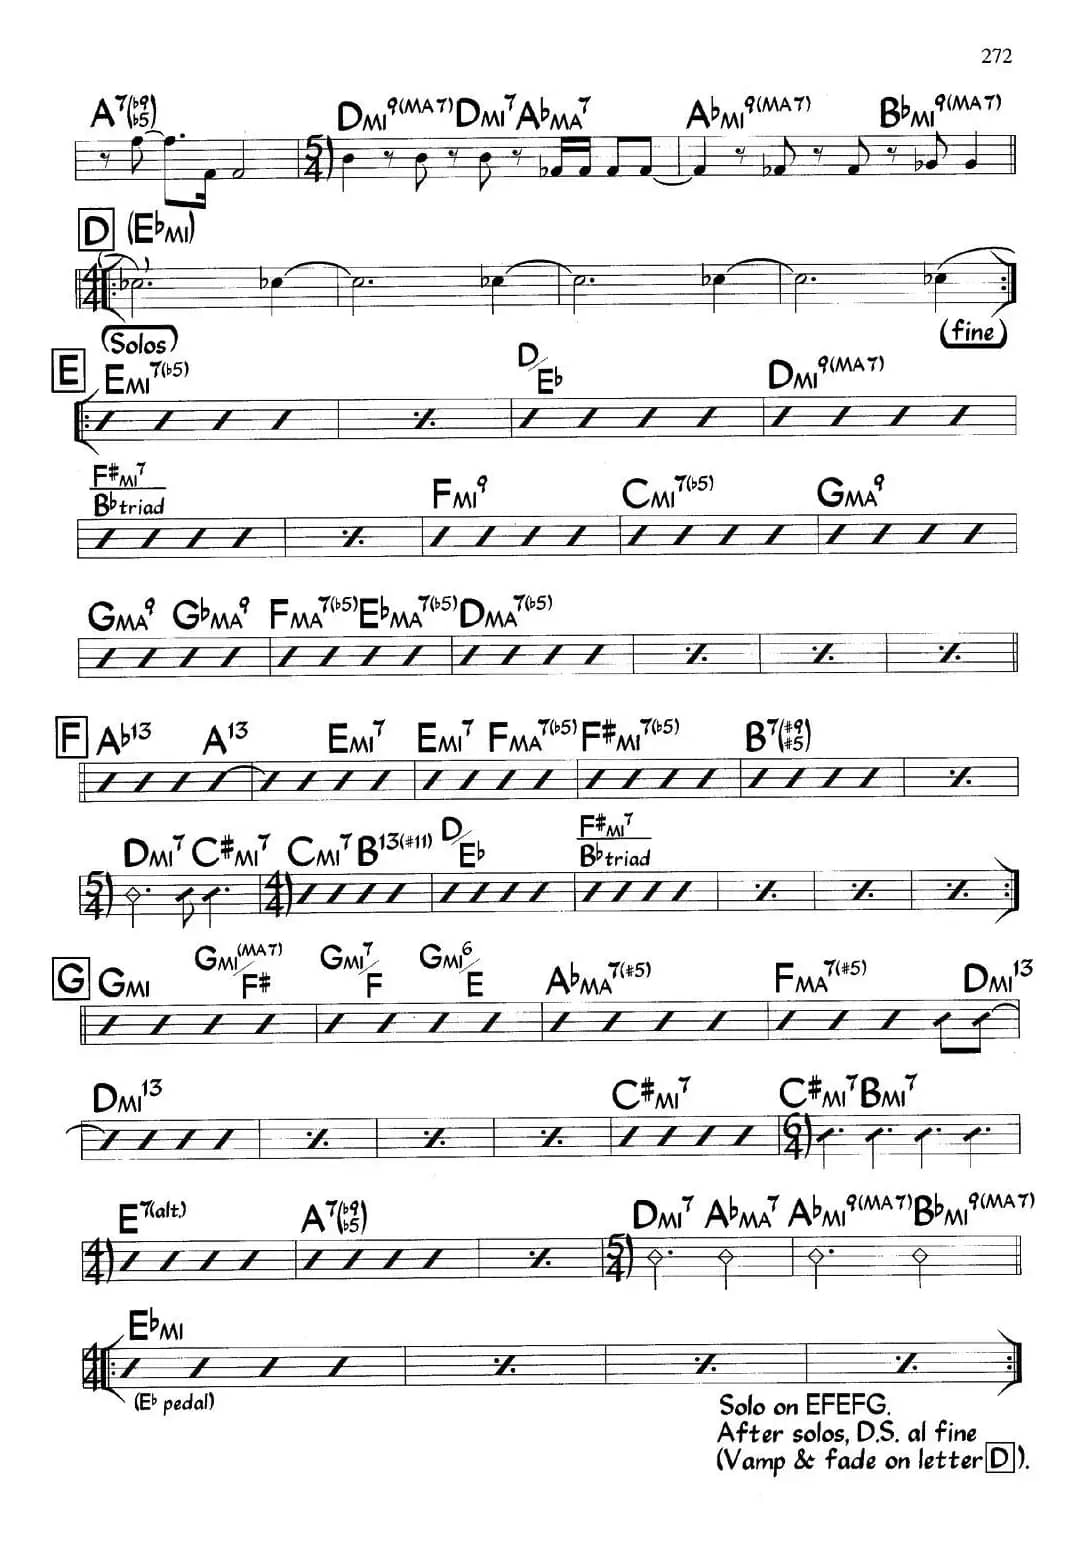 272
A7(♭9♭5) DMI9(MA7) DMI7 A♭MA7 A♭MI9(MA7) B♭MI9(MA7)
5/4
D (E♭MI)
4/4
(Solos) (fine)
E EMI7(♭5) D/E♭ DMI9(MA7)
F♯MI7 FMI9 CMI7(♭5) GMA9
B♭triad
GMA9 G♭MA9 FMA7(♭5) E♭MA7(♭5) DMA7(♭5)
F A♭13 A13 EMI7 EMI7 FMA7(♭5) F♯MI7(♭5) B7(♯9♯5)
DMI7 C♯MI7 CMI7 B13(♯11) D/E♭ F♯MI7
B♭triad
5/4 4/4
G GMI GMI(MA7)/F♯ GMI7/F GMI6/E A♭MA7(♯5) FMA7(♯5) DMI13
DMI13 C♯MI7 C♯MI7 BMI7
6/4
E7(alt.) A7(♭9♭5) DMI7 A♭MA7 A♭MI9(MA7) B♭MI9(MA7)
4/4 5/4
E♭MI
4/4
(E♭ pedal)
Solo on EFEFG.
After solos, D.S. al fine
(Vamp & fade on letter D).